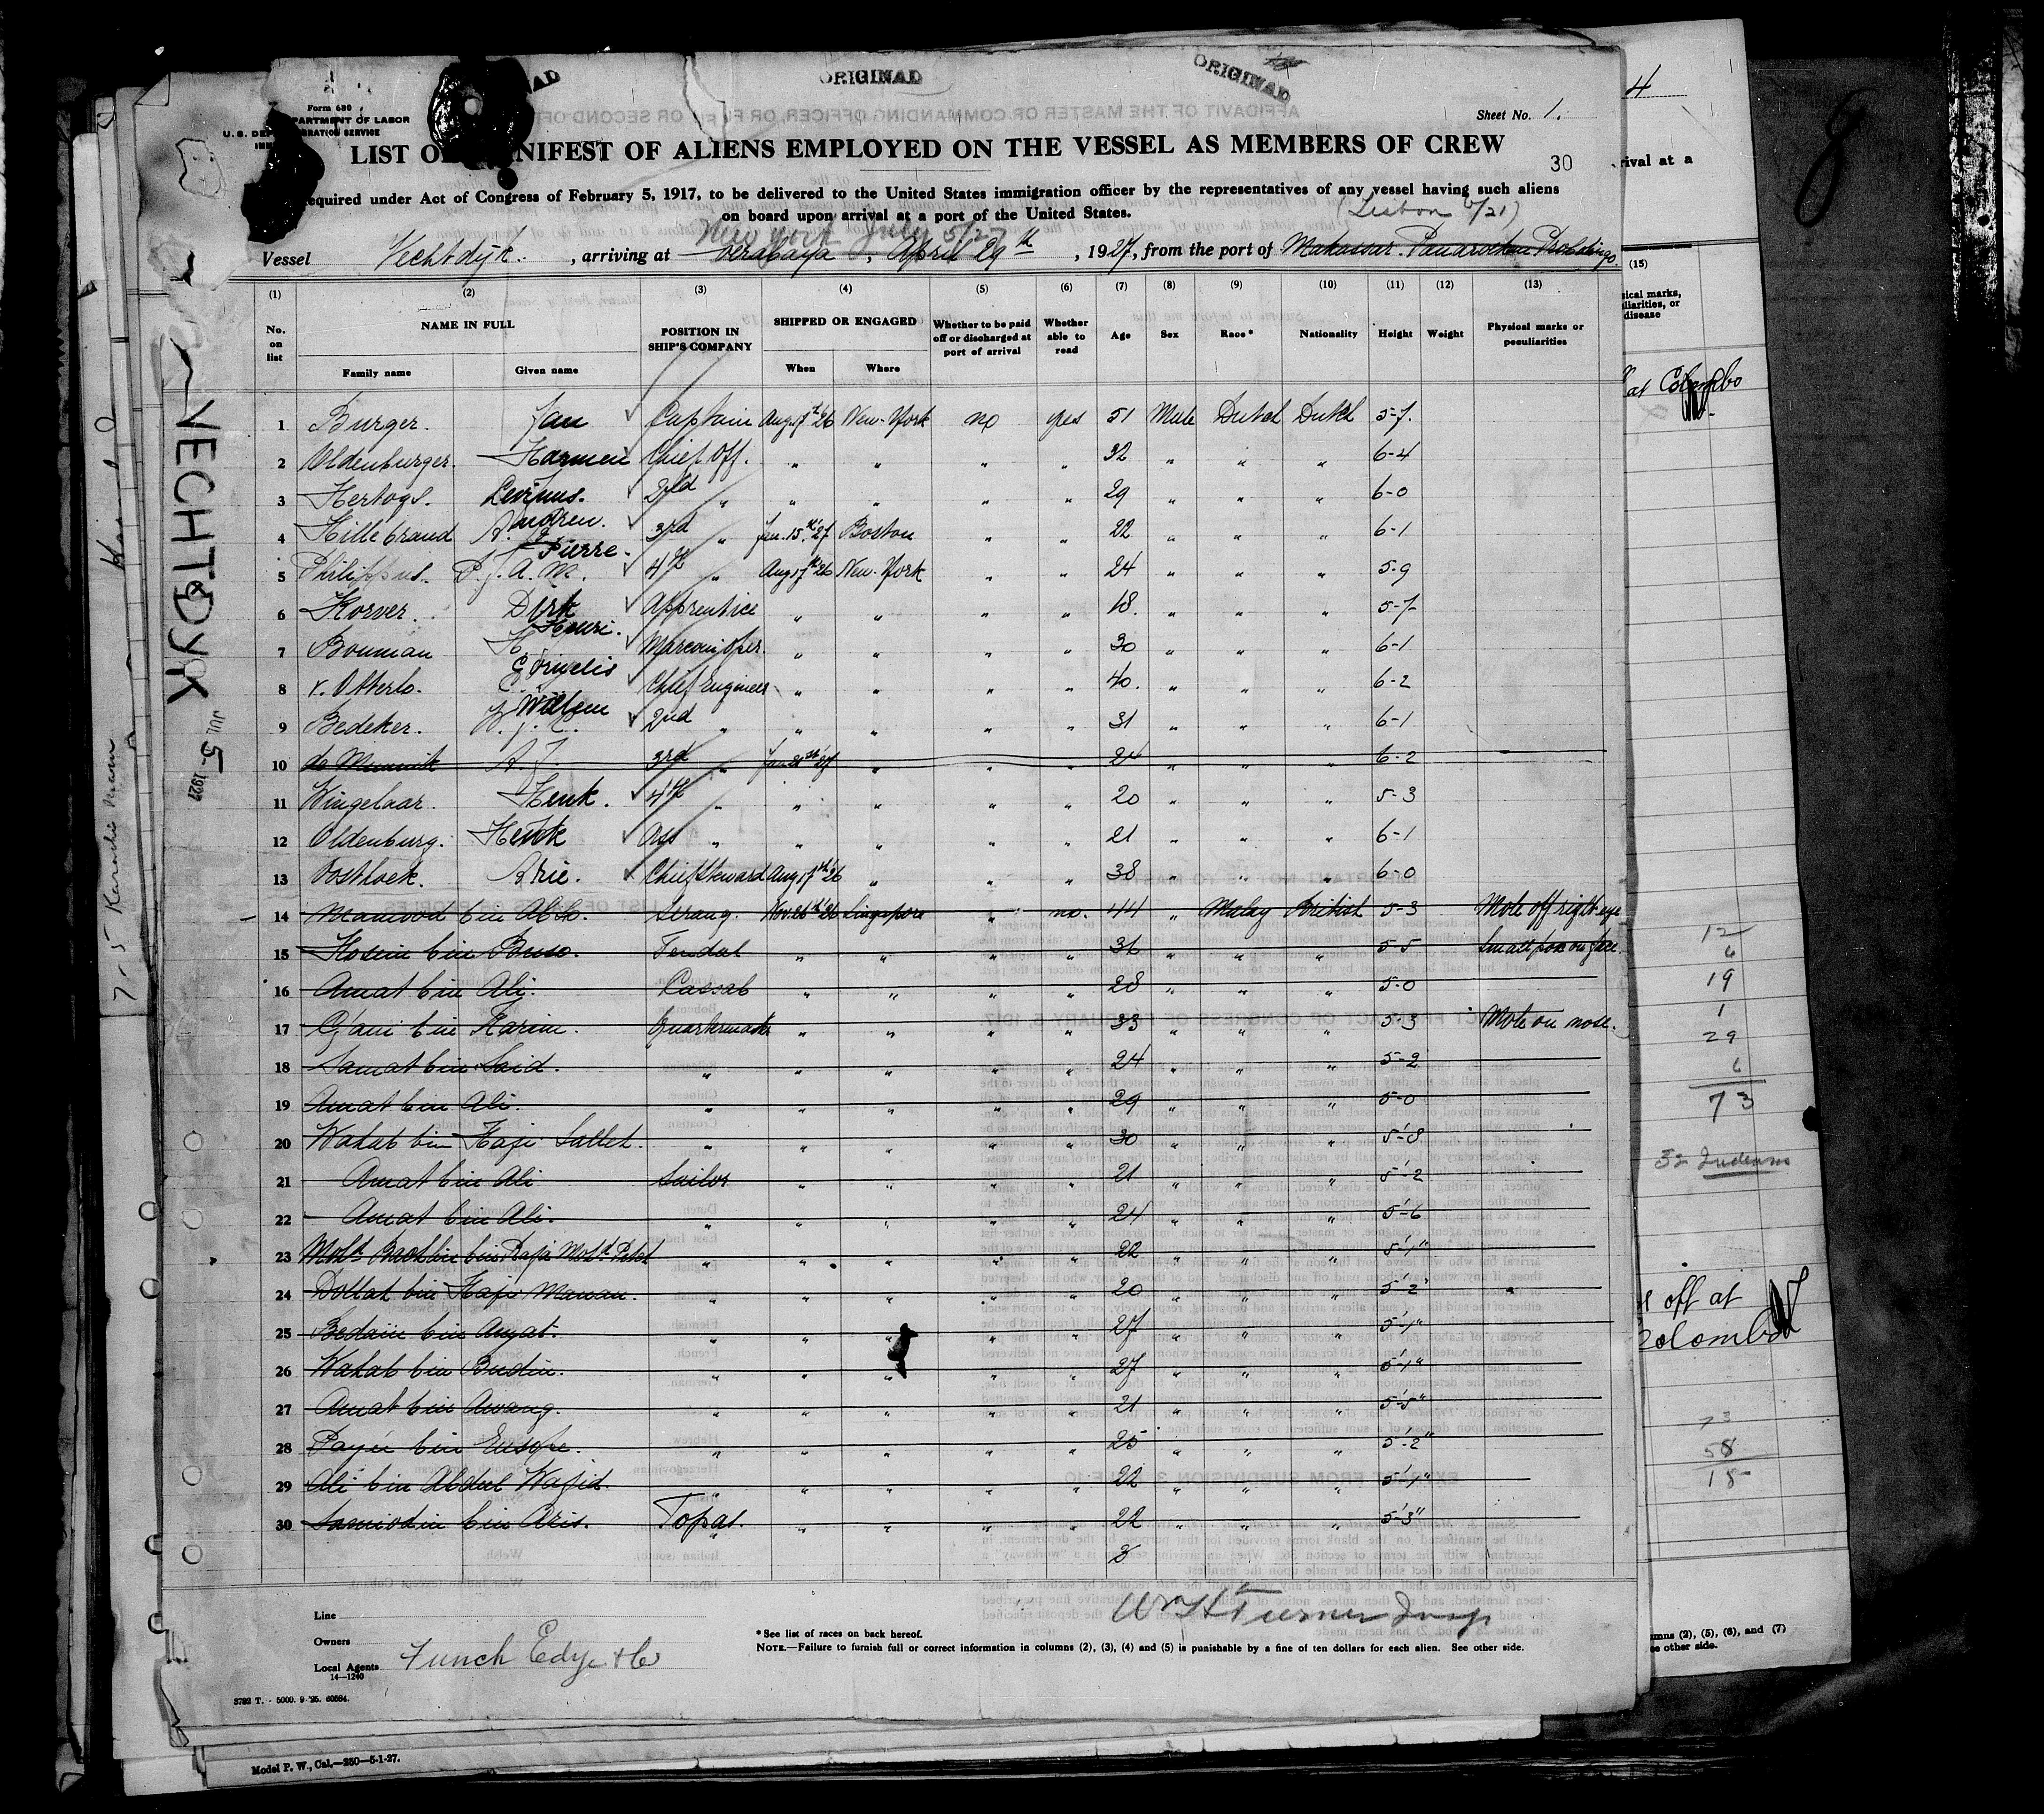 ORIGINAL
ORIGINAL
Form 680
U.S. DEPARTMENT OF LABOR
IMMIGRATION SERVICE
Sheet No. 1.
LIST OR MANIFEST OF ALIENS EMPLOYED ON THE VESSEL AS MEMBERS OF CREW
30
Required under Act of Congress of February 5, 1917, to be delivered to the United States immigration officer by the representatives of any vessel having such aliens
on board upon arrival at a port of the United States.
New York July 5/27
Vessel Vechtdijk., arriving at Soerabaya, April 29th, 1927, from the port of Makassar. Panaroekan Probolingo
(1) (2) (3) (4) (5) (6) (7) (8) (9) (10) (11) (12) (13)
No. on list NAME IN FULL Family name Given name POSITION IN SHIP'S COMPANY SHIPPED OR ENGAGED When Where Whether to be paid off or discharged at port of arrival Whether able to read Age Sex Race* Nationality Height Weight Physical marks or peculiarities
1 Burger. Jan Captain Aug 17th '26 New-York no yes 51 Male Dutch Dutch 5-7.
2 Oldenburger. Harmen Chief Off. " " " " 32 " " " 6-4
3 Hertogs. Levinus. 2nd " " " " " 29 " " " 6-0
4 Hillebrand A. 3rd " Jan. 15th '27 Boston " " 22 " " " 6-1
Pierre.
5 Philippus. P.J.A.M. 4th " Aug 17th '26 New-York " " 24 " " " 5-9
6 Korver. Dirk Apprentice " " " " 18. " " " 5-7
Henri.
7 Bouman H. Marconi Oper. " " " " 30 " " " 6-1
Cornelis
8 v. Otterlo. C. Chief Engineer " " " " 40. " " " 6-2
Willem
9 Bedeker. W.J.C. 2nd " " " " " 31 " " " 6-1
10 de Munnik A.J. 3rd " Jan 21st '27 " " " 24 " " " 6-2
11 Wingelaar. Henk. 4th " " " " " 20 " " " 5-3
12 Oldenburg. Henk Ass " " " " " 21 " " " 6-1
13 Oosthoek. Arie. Chief Steward Aug 17th '26 " " " 38 " " " 6-0
14 Mamood bin Abso. Serang. Nov. 26th '26 Singapore " no. 44 " Malay British 5-3 Mole off right eye
15 Hosein bin Buso. Tendal " " " " 36 " " " 5-5 Small pox on face.
16 Amat bin Ali. Cassab " " " " 28 " " " 5-0
17 Gani bin Karim. Quartermaster " " " " 33 " " " 5-3 Mole on nose.
18 Samat bin Said. " " " " " 24 " " " 5-2
19 Amat bin Ali. " " " " " 29 " " " 5-0
20 Wahab bin Haji Salleh. " " " " " 30 " " " 5'-8
21 Amat bin Ali Sailor " " " " 21 " " " 5'-2
22 Amat bin Ali. " " " " " 24 " " " 5'-6
23 Mohd. bin Mohd. " " " " " 22 " " " 5'-1"
24 Dollah bin Haji Manan. " " " " " 20 " " " 5'-2"
25 Bedain bin Amat. " " " " " 27 " " " 5'-1"
26 Wahab bin Budin. " " " " " 27 " " " 5'-1"
27 Amat bin Awang. " " " " " 21 " " " 5'-5"
28 bin " " " " " 25 " " " 5'-2"
29 Ali bin Abdul Wajid. " " " " " 22 " " " 5'-1"
30 Samiodin bin Aris. Topas. " " " " 22 " " " 5'-3"
Wm H Turner Insp
Line
Owners
Local Agents Funch Edye & Co
14—1240
*See list of races on back hereof.
NOTE.—Failure to furnish full or correct information in columns (2), (3), (4) and (5) is punishable by a fine of ten dollars for each alien. See other side.
Model P. W., Cal.—250—5-1-27.
VECHTDYK
JUL 5-1927
(Lisbon 6/21)
4
rival at a
(15)
at Colombo
12
6
19
1
29
6
73
32 Indians
off at
Colombo
73
58
15
8